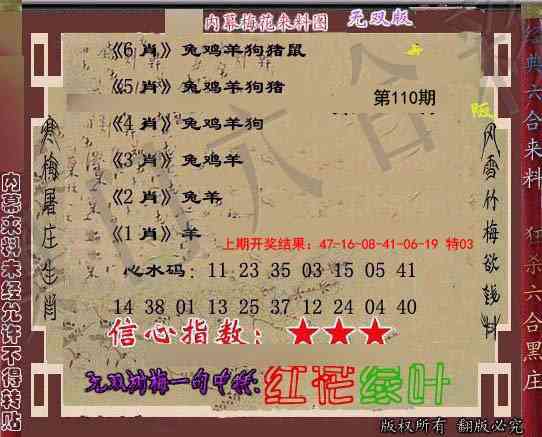 内幕梅花来料图 无双版
《6 肖》兔鸡羊狗猪鼠
《5 肖》兔鸡羊狗猪
第110期
《4 肖》兔鸡羊狗
《3 肖》兔鸡羊
《2 肖》兔羊
《1 肖》羊
上期开奖结果：47-16-08-41-06-19 特03
心水码：11 23 35 03 15 05 41
14 38 01 13 25 37 12 24 04 40
信心指数：★★★
无双湖梅一句中特:红花绿叶
版权所有 翻版必究
寒梅屠庄生肖
风雪竹梅欲钱料
内幕来料未经允许不得转贴
经典六合来料
狂杀六合黑庄
六合